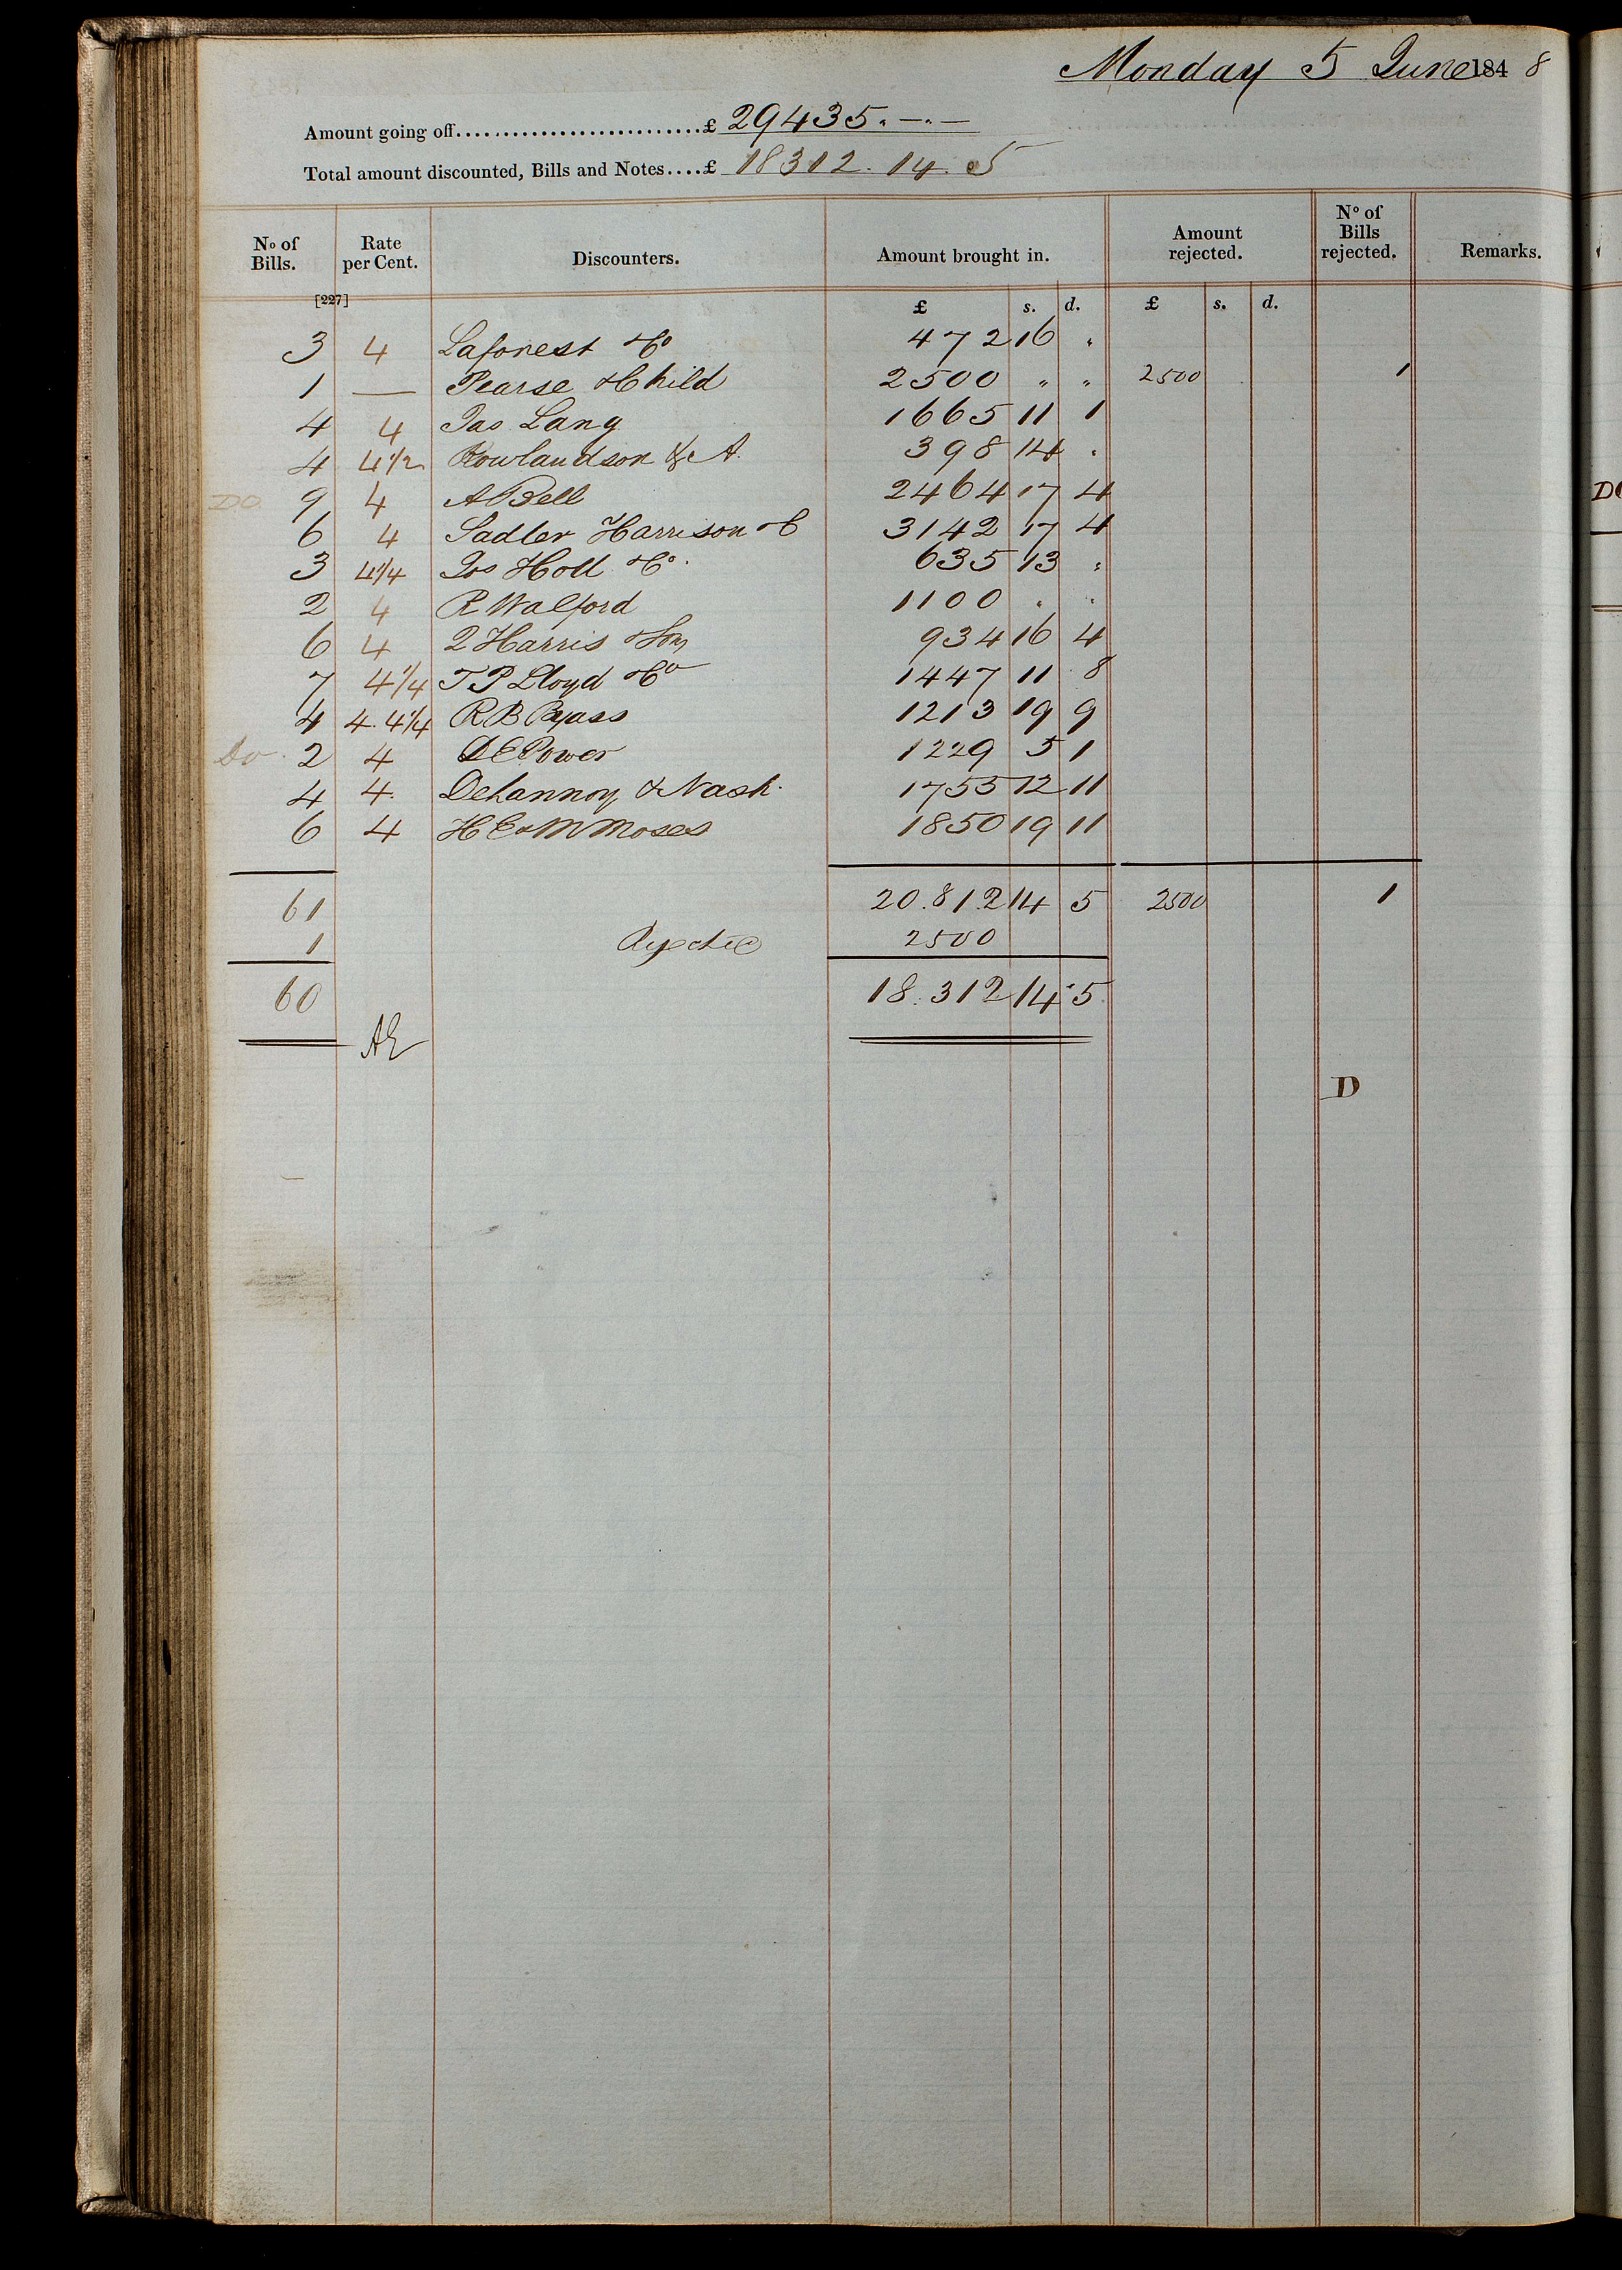 Monday 5 June 1848
Amount going off........................... £ 29435. – . –
Total amount discounted, Bills and Notes....£ 18312. 14. 5
No of Bills. Rate per Cent. Discounters. Amount brought in. Amount rejected. No of Bills rejected. Remarks.
[227] £ s. d. £ s. d.
3 4 Laforest & Co 472 16 "
1 — Pearse & Child 2500 " " 2500 1
4 4 Jas Lang 1665 11 1
4 4 1/2 Rowlandson & A. 398 14 "
DO 9 4 A Bell 2464 17 4
6 4 Sadler Harrison & C 3142 17 4
3 4 1/4 Jos Holl & Co. 635 13 "
2 4 R Walford 1100 " "
6 4 Harris & Son 934 16 4
7 4 1/4 T P Lloyd & Co 1447 11 8
4 4. 4 1/4 R B Byass 1213 19 9
Do 2 4 D E Power 1229 5 1
4 4. Dehannoy & Nash. 1755 12 11
6 4 H E & M Moses 1850 19 11
61 20.812 14 5 2500 1
1 Rejected 2500
60 18.312 14 5
AE
D
DO